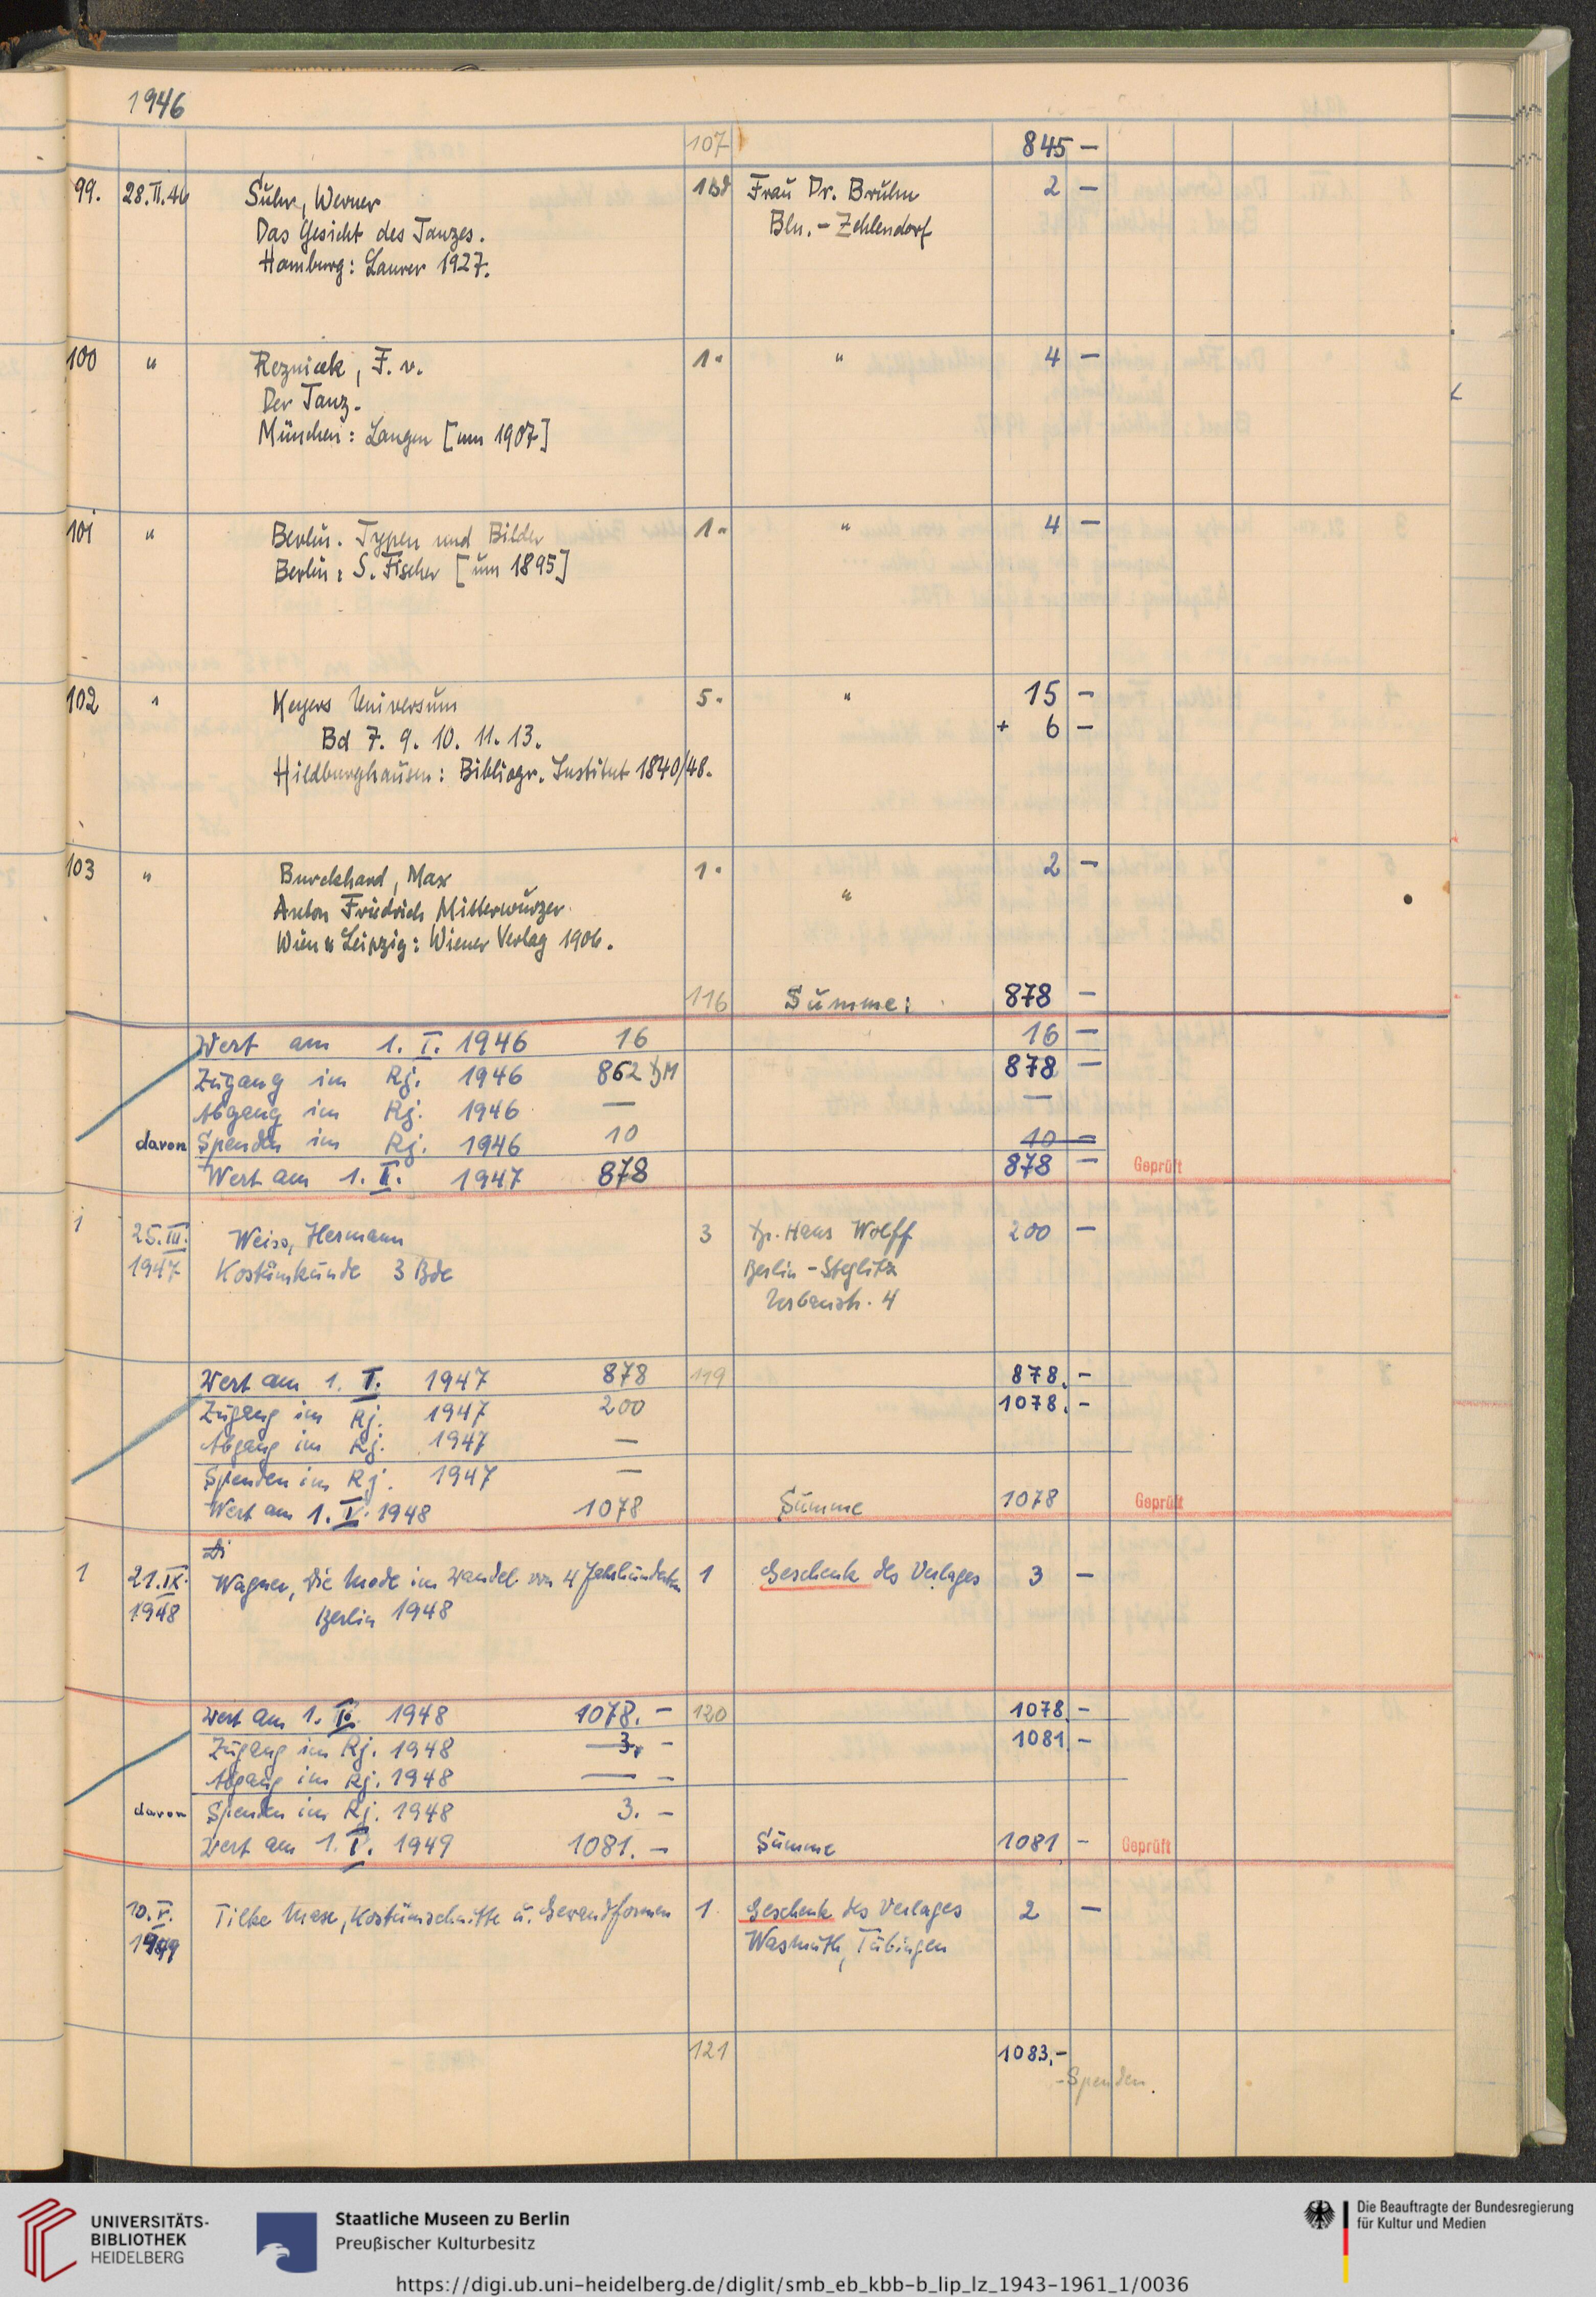 1946
107 845 –
99. 28.II.46 Suhr, Werner 1 Bd Frau Dr. Bruhn 2 –
Das Gesicht des Tanzes. Bln.-Zehlendorf
Hamburg: Laurer 1927.
100 " Reznicek, F. v. 1 " " 4 –
Der Tanz.
München: Langen [um 1907]
101 " Berlin. Typen und Bilder 1 " " 4 –
Berlin: S. Fischer [um 1895]
102 " Meyers Universum 5 " " 15 –
Bd 7. 9. 10. 11. 13. + 6 –
Hildburghausen: Bibliogr. Institut 1840/48.
103 " Burckhard, Max 1 " 2 –
Anton Friedrich Mitterwurzer. "
Wien u Leipzig: Wiener Verlag 1906.
116 Summe: 878 –
Wert am 1. I. 1946 16 16 –
Zugang im Rj. 1946 862 DM 878 –
Abgang im Rj. 1946 — —
davon Spenden im Rj. 1946 10 10 –
Wert am 1. 1947 878 878 – Geprüft
1 25.III. Weiss, Hermann 3 Dr. Hans Wolff 200 –
1947 Kostümkunde 3 Bde Berlin-Steglitz
4
Wert am 1. 1947 878 119 878.–
Zugang im Rj. 1947 200 1078.–
Abgang im Rj. 1947 —
Spenden im Rj. 1947 —
Wert am 1. 1948 1078 Summe 1078 Geprüft
Di
1 21.IX. Wagner, Die Mode im Wandel von 4 Jahrhunderten 1 Geschenk des Verlages 3 –
1948 Berlin 1948
Wert am 1. 1948 1078.– 120 1078.–
Zugang im Rj. 1948 3.– 1081.–
Abgang im Rj. 1948 — –
davon Spenden im Rj. 1948 3.–
Wert am 1. 1949 1081.– Summe 1081 – Geprüft
10.V. Tilke Max, Kostümschnitte u. Gewandformen 1 Geschenk des Verlages 2 –
1949 Wasmuth, Tübingen
121 1083,–
-Spenden.
UNIVERSITÄTS-
BIBLIOTHEK
HEIDELBERG
Staatliche Museen zu Berlin
Preußischer Kulturbesitz
Die Beauftragte der Bundesregierung
für Kultur und Medien
https://digi.ub.uni-heidelberg.de/diglit/smb_eb_kbb-b_lip_lz_1943-1961_1/0036